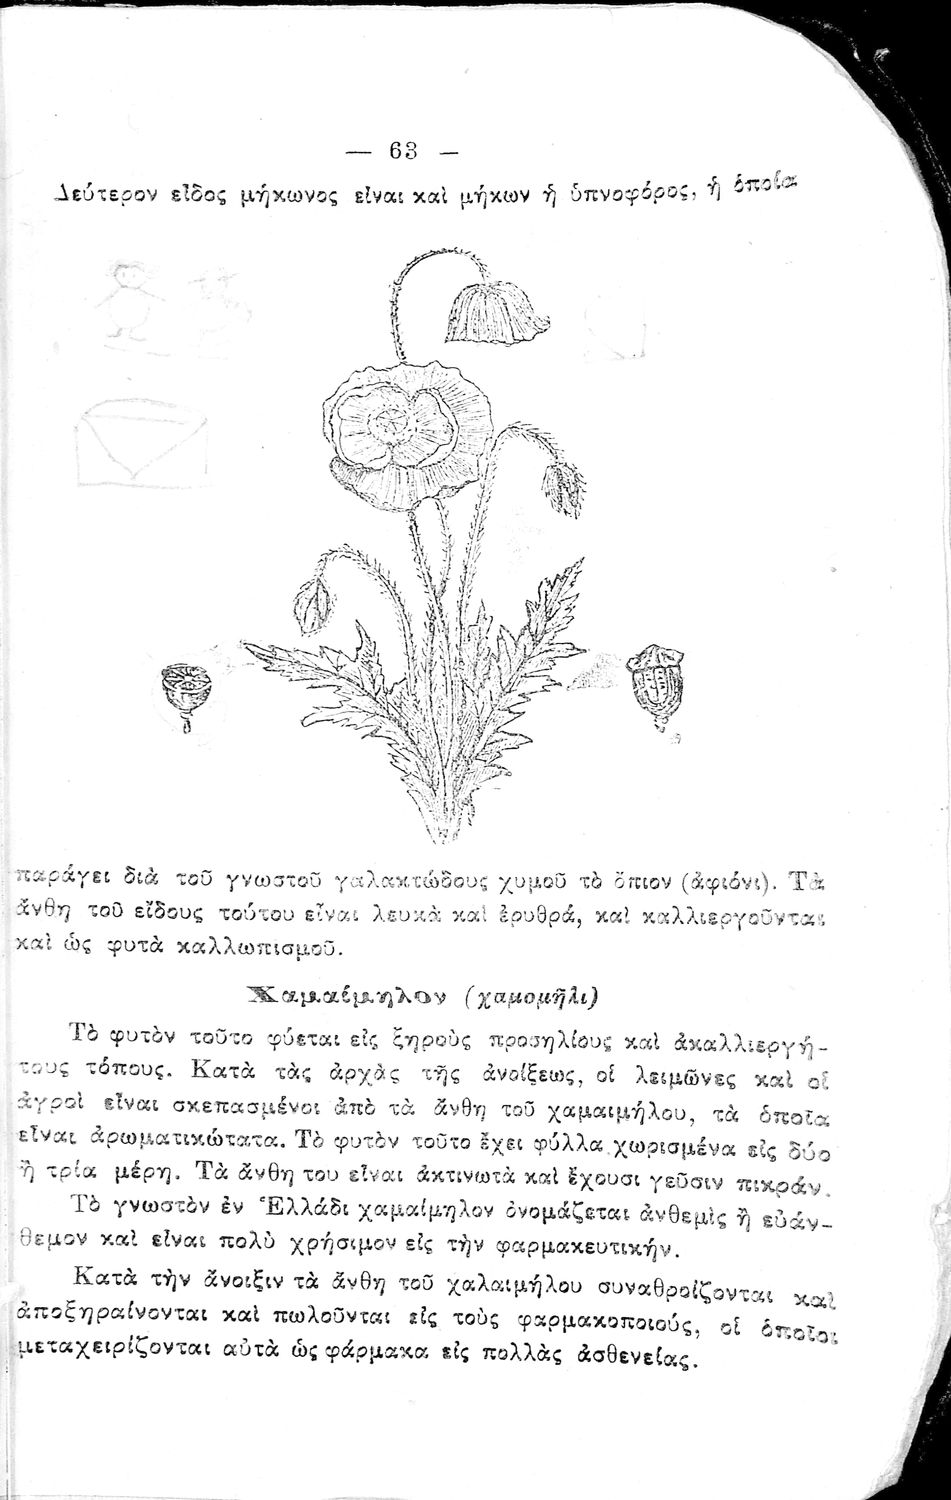 — 63 —
Δεύτερον εἶδος μήκωνος εἶναι καὶ μήκων ἡ ὑπνοφόρος, ἡ ὁποία
παράγει διὰ τοῦ γνωστοῦ γαλακτώδους χυμοῦ τὸ ὄπιον (ἀφιόνι). Τὰ
ἄνθη τοῦ εἴδους τούτου εἶναι λευκὰ καὶ ἐρυθρά, καὶ καλλιεργοῦνται
καὶ ὡς φυτὰ καλλωπισμοῦ.
Χαμαίμηλον (χαμομῆλι)
Τὸ φυτὸν τοῦτο φύεται εἰς ξηροὺς προσηλίους καὶ ἀκαλλιεργή-
τους τόπους. Κατὰ τὰς ἀρχὰς τῆς ἀνοίξεως, οἱ λειμῶνες καὶ οἱ
ἀγροὶ εἶναι σκεπασμένοι ἀπὸ τὰ ἄνθη τοῦ χαμαιμήλου, τὰ ὁποῖα
εἶναι ἀρωματικώτατα. Τὸ φυτὸν τοῦτο ἔχει φύλλα χωρισμένα εἰς δύο
ἢ τρία μέρη. Τὰ ἄνθη του εἶναι ἀκτινωτὰ καὶ ἔχουσι γεῦσιν πικράν.
Τὸ γνωστὸν ἐν Ἑλλάδι χαμαίμηλον ὀνομάζεται ἀνθεμὶς ἢ εὐάν-
θεμον καὶ εἶναι πολὺ χρήσιμον εἰς τὴν φαρμακευτικήν.
Κατὰ τὴν ἄνοιξιν τὰ ἄνθη τοῦ χαλαιμήλου συναθροίζονται καὶ
ἀποξηραίνονται καὶ πωλοῦνται εἰς τοὺς φαρμακοποιούς, οἱ ὁποῖοι
μεταχειρίζονται αὐτὰ ὡς φάρμακα εἰς πολλὰς ἀσθενείας.